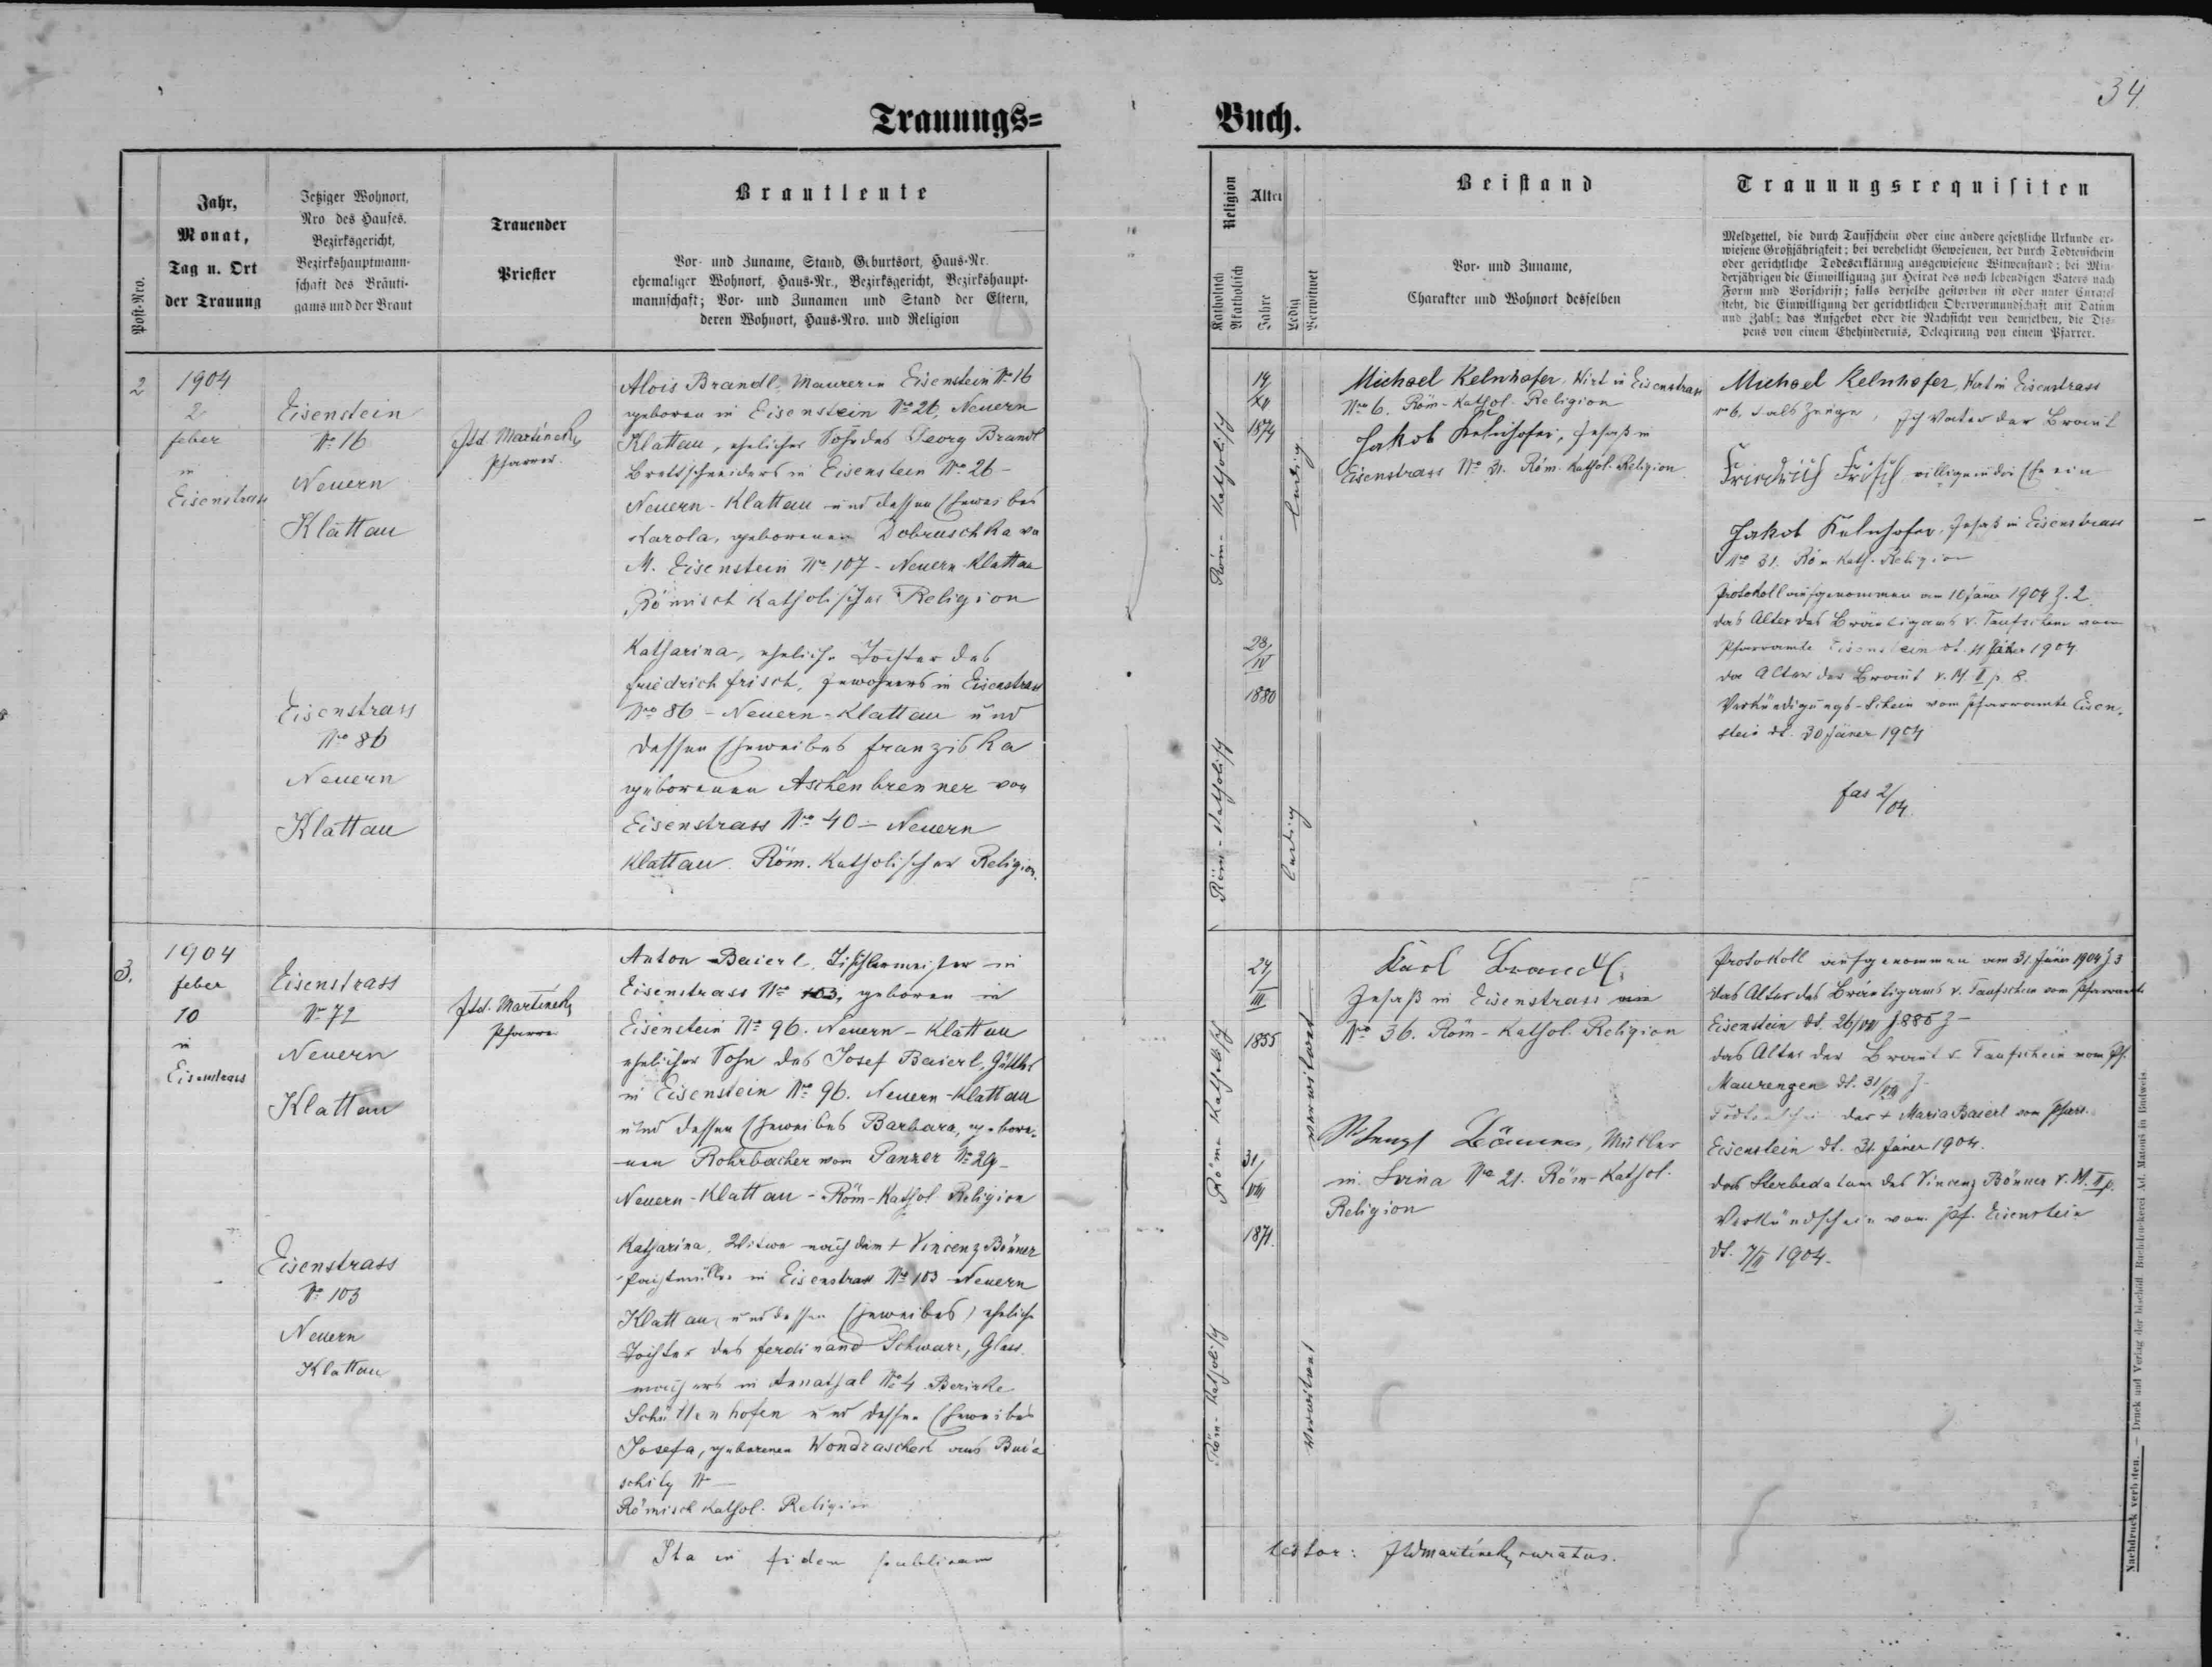 34
Trauungs=
Buch.
Post-Nro.
Jahr,
Monat,
Tag u. Ort
der Trauung
Jetziger Wohnort,
Nro des Hauses.
Bezirksgericht,
Bezirkshauptmann-
schaft des Bräuti-
gams und der Braut
Trauender
Priester
Brautleute
Vor- und Zuname, Stand, Geburtsort, Haus-Nr.
ehemaliger Wohnort, Haus-Nr., Bezirksgericht, Bezirkshaupt-
mannschaft; Vor- und Zunamen und Stand der Eltern,
deren Wohnort, Haus-Nro. und Religion
Religion
Katholisch
Akatholisch
Alter
Jahre
Ledig
Verwitwet
Beistand
Vor- und Zuname,
Charakter und Wohnort desselben
Trauungsrequisiten
Meldzettel, die durch Taufschein oder eine andere gesetzliche Urkunde er-
wiesene Großjährigkeit; bei verehelicht Gewesenen, der durch Todtenschein
oder gerichtliche Todeserklärung ausgewiesene Witwenstand; bei Min-
derjährigen die Einwilligung zur Heirat des noch lebendigen Vaters nach
Form und Vorschrift; falls derselbe gestorben ist oder unter Curatel
steht, die Einwilligung der gerichtlichen Obervormundschaft mit Datum
und Zahl; das Aufgebot oder die Nachsicht von demselben, die Dis-
pens von einem Ehehindernis, Delegirung von einem Pfarrer.
2
1904
2
feber
in
Eisenstrass
Eisenstein
No 16
Neuern
Klattau
Jtd. Martínek,
Pfarrer.
Alois Brandl, Maurer in Eisenstein No 16
geboren in Eisenstein No 26, Neuern
Klattau, ehelicher Sohn des Georg Brandl
Brettschneiders in Eisenstein No 26 -
Neuern - Klattau und dessen Eheweibes
Karola, geborenen Dobruschka von
M. Eisenstein No 107 - Neuern - Klattau
Römisch Katholischer Religion
Eisenstrass
No 86
Neuern
Klattau
Katharina, eheliche Tochter des
Friedrich Frisch, in Eisenstrass
No 86 - Neuern - Klattau und
dessen Eheweibes Franziska
geborenen Aschenbrenner von
Eisenstrass No 40 - Neuern
Klattau. Röm. Katholischer Religion.
Röm- Katholisch
19/
XII
1874
ledig
Röm-Katholisch
28/
IV
1880
ledig
Michael Kelnhofer, Wirt in Eisenstrass
No 6. Röm-Kathol. Religion
Jakob Kelnhofer, Insaß in
Eisenstrass No 31. Röm. Kathol. Religion
Michael Kelnhofer, Wirt in Eisenstrass
No 6. als Zeuge, Ich Vater der Braut
Friedrich Frisch willige in die Ehe ein
Jakob Kelnhofer, Insaß in Eisenstrass
No 31. Röm Kath. Religion
Protokoll aufgenommen am 10 Jäner 1904 Z. 2
das Alter des Bräutigams v. Taufschein vom
Pfarramte Eisenstein dt. 11 Jäner 1904
das Alter der Braut v. M. II p. 8.
Verkündigungs-Schein vom Pfarramte Eisen-
stein dt. 30 Jäner 1904
fas 2/04
3.
1904
feber
10
in
Eisenstrass
Eisenstrass
No 72
Neuern
Klattau
Jtd. Martínek,
Pfarrer
Anton Baierl, Tischlermeister in
Eisenstrass No 103, geboren in
Eisenstein No 96. Neuern - Klattau
ehelicher Sohn des Josef Baierl,
in Eisenstein No 96. Neuern - Klattau
und dessen Eheweibes Barbara, gebore-
nen Rohrbacher vom Panzer No 29 -
Neuern - Klattau - Röm-Kathol. Religion
Eisenstrass
No 103
Neuern
Klattau
Katharina, Witwe nach dem + Vincenz Bönner
Pachtmüller in Eisenstrass No 103 Neuern
Klattau (und dessen Eheweibes) eheliche
Tochter des Ferdinand Schwarz, Glas-
machers in Annathal No 4 Bezirke
Schüttenhofen und dessen Eheweibes
Josefa, geborenen Wondraschek aus
No -
Römisch Kathol. Religion
Röm- Katholisch
24/
III
1855
verwitwet
Röm- Katholisch
31/
VIII
1871.
verwitwet
Karl Brandl,
Insaß in Eisenstrass
No 36. Röm-Kathol. Religion
Bönner, Müller
in No 21. Röm-Kathol.
Religion
Protokoll aufgenommen am 31. Jäner 1904 Z 3
das Alter des Bräutigams v. Taufschein vom Pfarramte
Eisenstein dt. 26/VIII 1885 Z -
das Alter der Braut v. Taufschein vom Pf.
Maurenzen dt. 31/VIII Z -
Todtenschein der + Maria Baierl vom Pfarr.
Eisenstein dt. 31. Jäner 1904.
das Sterbedatum des Vincenz Bönner v. M. II p.
Verkündschein vom Pf. Eisenstein
dt. 7/II 1904.
Ita in fidem publicam
testor: Jtdmartínek, curatus.
Nachdruck verboten. — Druck und Verlag der bischöfl. Buchdruckerei Ad. Matous in Budweis.